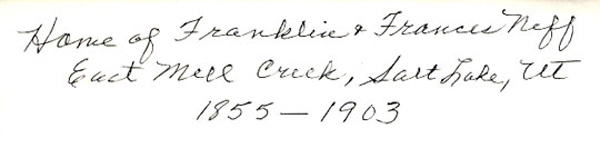 Home of Franklin & Frances Neff
East Mill Creek, Salt Lake, Ut
1855 — 1903